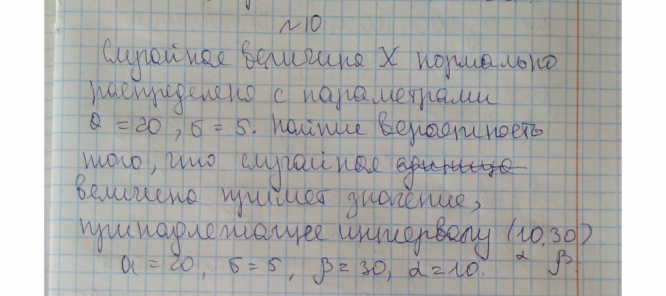 №10
Случайная величина X нормально
распределена с параметрами
a = 20, σ = 5. Найти вероятность
того, что случайная
величина примет значение,
принадлежащее интервалу (10,30)
α β
a = 20, σ = 5, β = 30, α = 10.